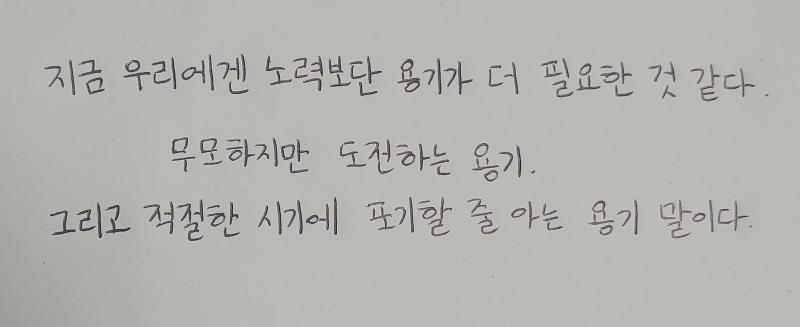 지금 우리에겐 노력보단 용기가 더 필요한 것 같다.
무모하지만 도전하는 용기.
그리고 적절한 시기에 포기할 줄 아는 용기 말이다.